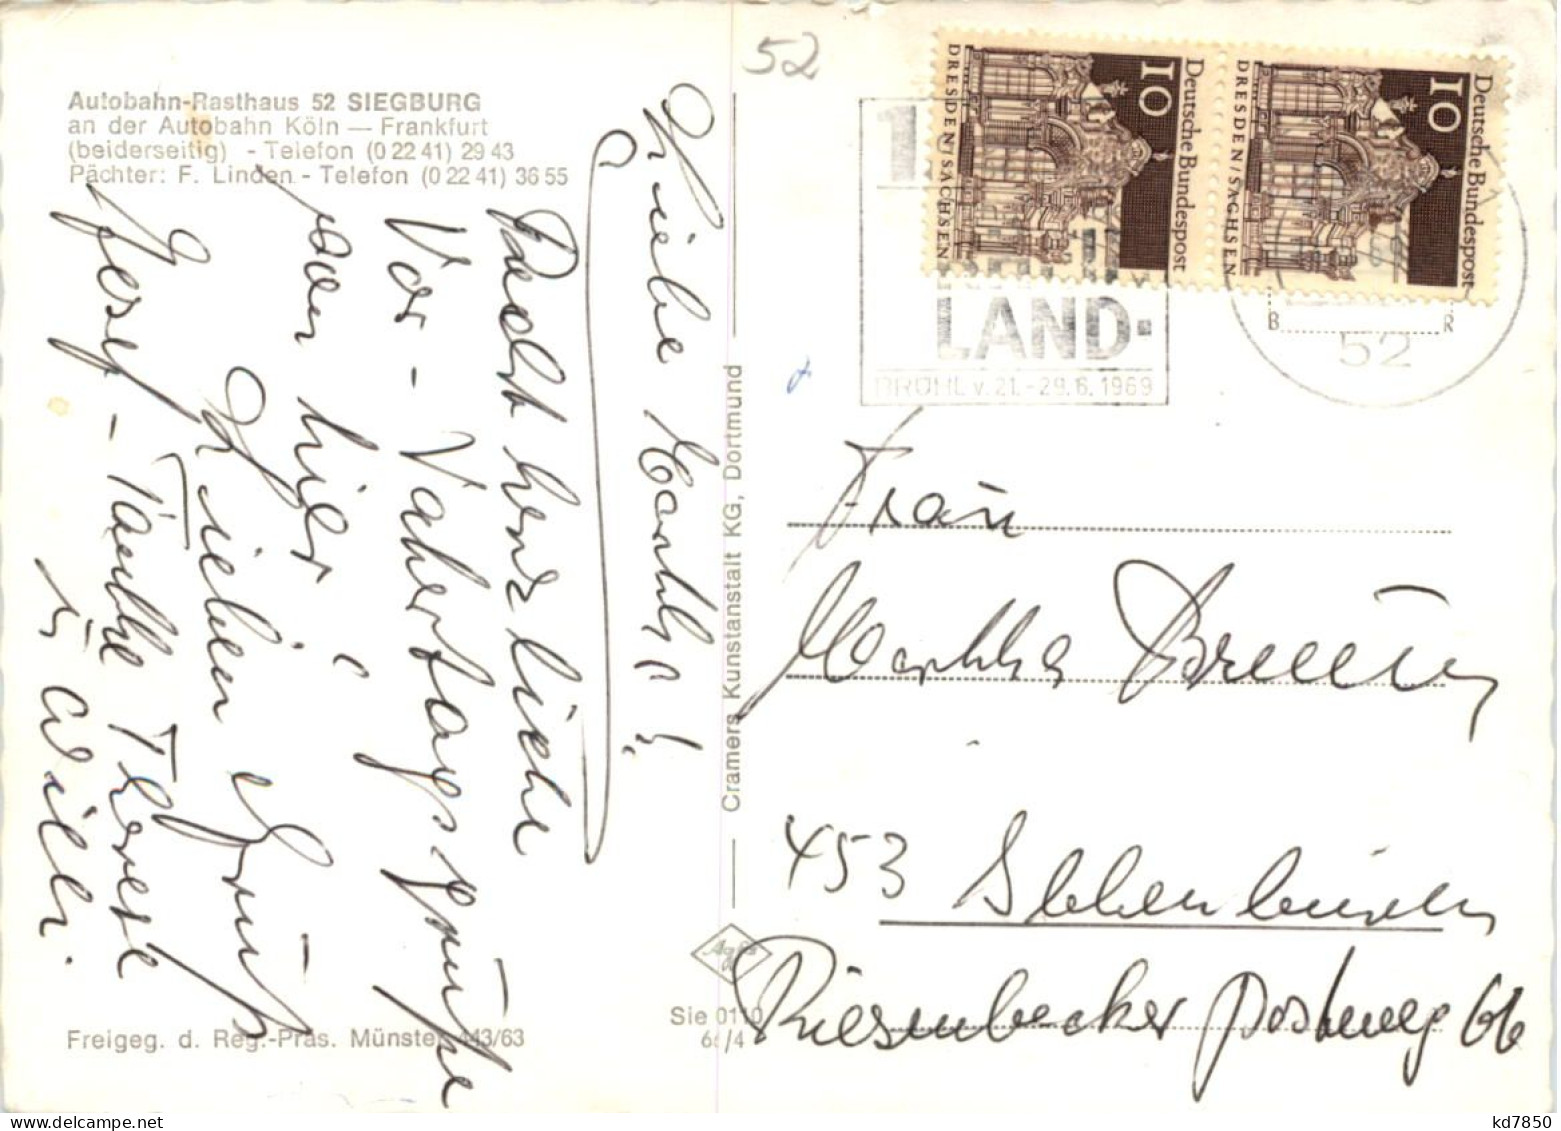 Autobahn-Rasthaus 52 SIEGBURG
an der Autobahn Köln — Frankfurt
(beiderseitig) - Telefon (0 22 41) 29 43
Pächter: F. Linden - Telefon (0 22 41) 36 55
Liebe Martha !
Recht herzliche
Vor - Vatertagsgrüße
von hier
Lieben Gruß
Josef - Tante Therese
ü. Willi.
Freigeg. d. Reg.-Präs. Münster 443/63
Cramers Kunstanstalt KG, Dortmund
Agfa
Sie 0110
66/4
52
Deutsche Bundespost
10
DRESDEN/SACHSEN
Deutsche Bundespost
10
DRESDEN/SACHSEN
LAND-
BRÜHL v. 21.-29.6.1969
52
Fraü
Martha
453 Ibbenbüren
Riesenbecker postweg 66
kd7850